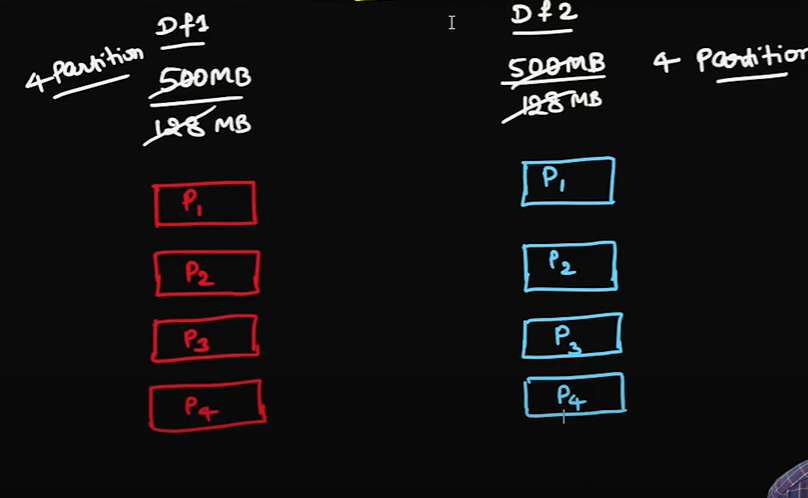 Df1
4 Partition
500MB
128 MB
P1
P2
P3
P4
Df2
500MB
128 MB
4 Partition
P1
P2
P3
P4